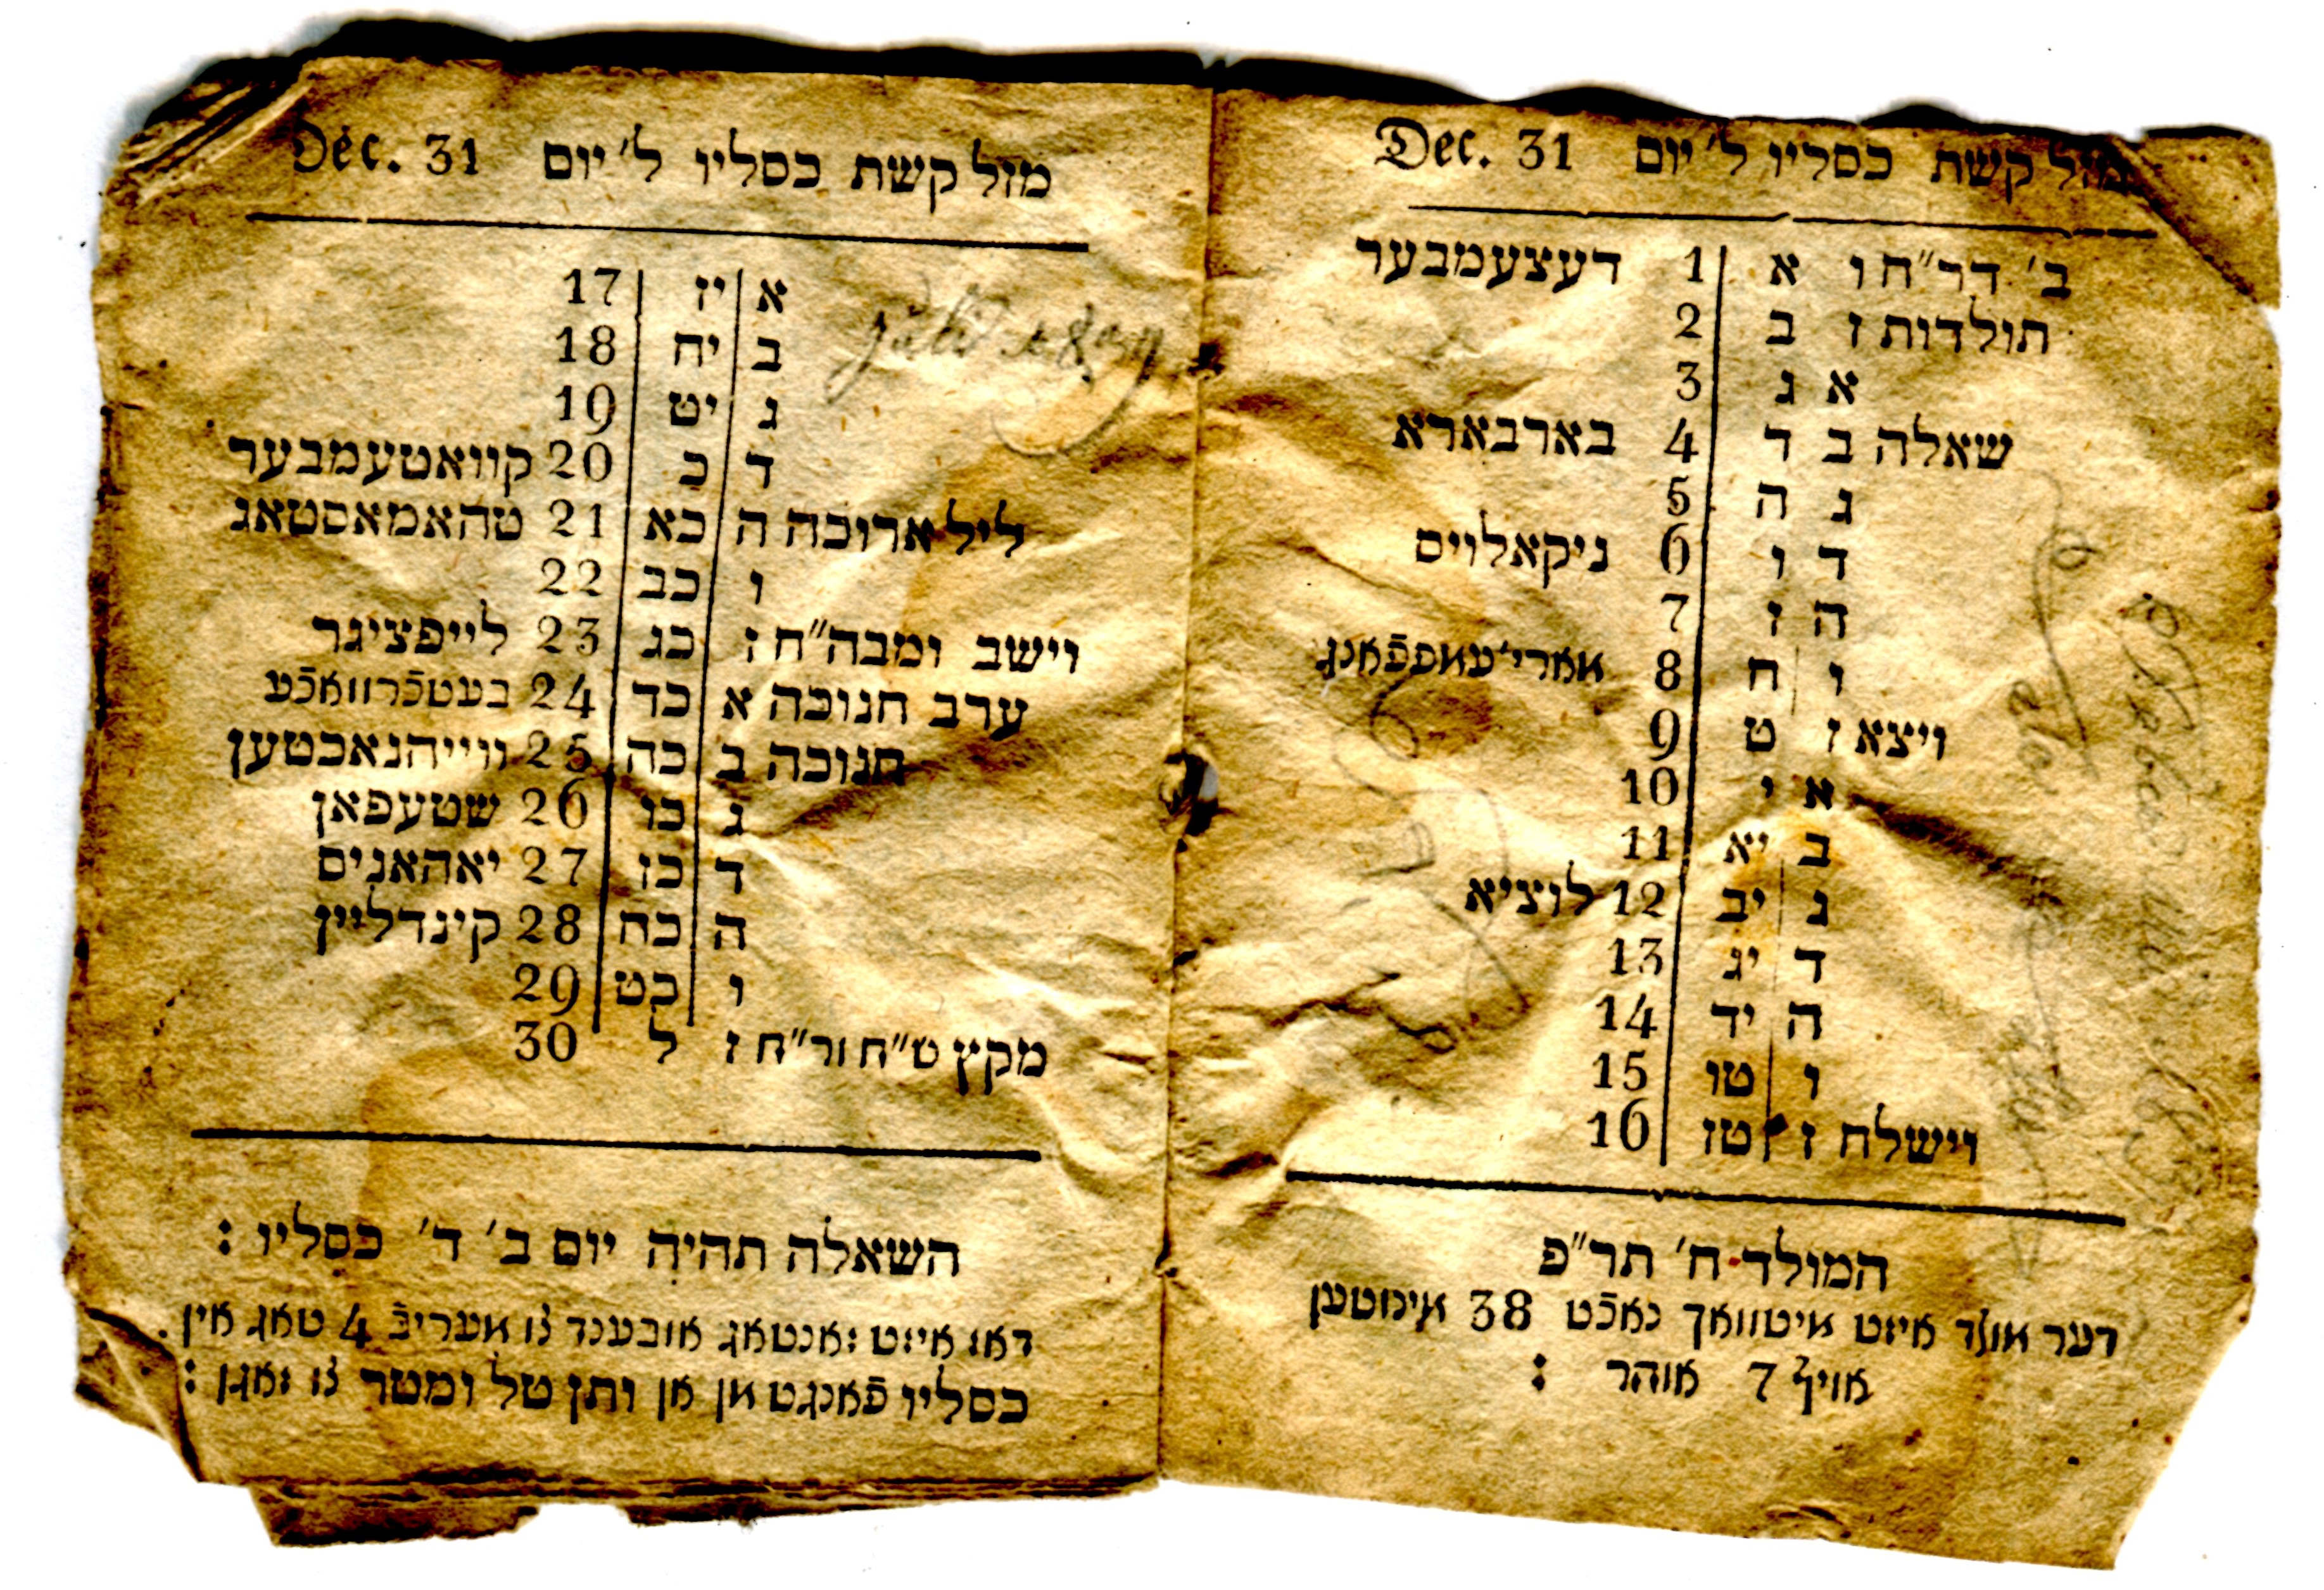 מזל קשת כסליו ל׳ יום Dec. 31
ב׳ דר״ח ו א 1 דעצעמבער
תולדות ז ב 2
א ג 3
שאלה ב ד 4 בארבארא
ג ה 5
ד ו 6 ניקאלויס
ה ז 7
ו ח 8 מארי׳עמפפֿאנג
ויצא ז ט 9
א י 10
ב יא 11
ג יב 12 לוציא
ד יג 13
ה יד 14
ו טו 15
וישלח ז טז 16
המולד ח׳ תר״פ
דער מולד איזט מיטוואך נאכֿט 38 מינוטען
אויף 7 אוהר :
מזל קשת כסליו ל׳ יום Dec. 31
א יז 17
ב יח 18
ג יט 19
ד כ 20 קוואטעמבער
ליל ארוכה ה כא 21 טהאמאסטאג
ו כב 22
וישב ומבה״ח ז כג 23 לייפציגר
ערב חנוכה א כד 24 בעטכֿרוואכֿע
חנוכה ב כה 25 ווייהנאכטען
ג כו 26 שטעפאן
ד כז 27 יאהאנים
ה כח 28 קינדליין
ו כט 29
מקץ ש״ח ור״ח ז ל 30
השאלה תהיה יום ב׳ ד׳ כסליו :
דאז איזט זאנטאג אובענד צו מעריבֿ 4 טאג אין
כסליו פֿאנגט מן אן ותן טל ומטר צו זאגן :